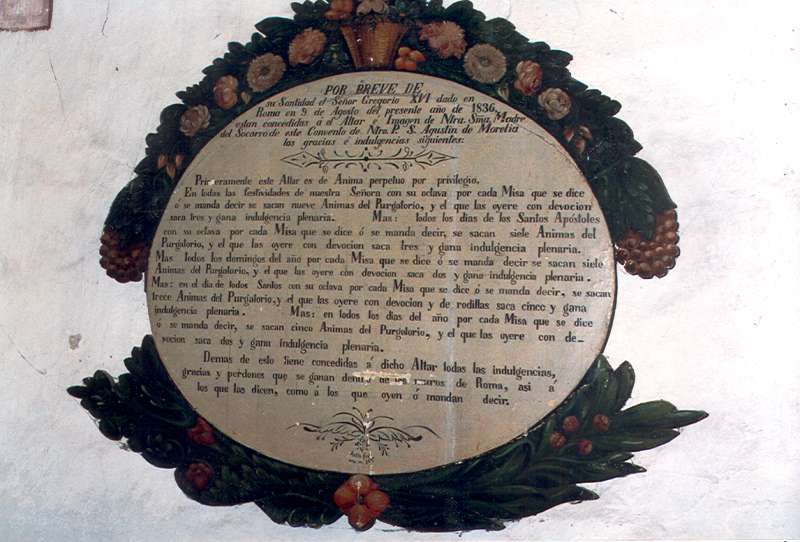 POR BREVE DE
su Santidad el Señor Gregorio XVI dado en
Roma en 9 de Agosto del presente año de 1836,
estan concedidas á el Altar é Imagen de Ntra. Sma. Madre
del Socorro de este Convento de Ntro. P. S. Agustin de Morelia
las gracias é indulgencias siguientes:
Primeramente este Altar es de Anima perpetuo por privilegio.
En todas las festividades de nuestra Señora con su octava por cada Misa que se dice
ó se manda decir se sacan nueve Animas del Purgatorio, y el que las oyere con devocion
saca tres y gana indulgencia plenaria. Mas: todos los dias de los Santos Apóstoles
con su octava por cada Misa que se dice ó se manda decir, se sacan siete Animas del
Purgatorio, y el que las oyere con devocion saca tres y gana indulgencia plenaria.
Mas todos los domingos del año por cada Misa que se dice ó se manda decir se sacan siete
Animas del Purgatorio, y el que las oyere con devocion saca dos y gana indulgencia plenaria.
Mas: en el dia de todos Santos con su octava por cada Misa que se dice ó se manda decir, se sacan
trece Animas del Purgatorio, y el que las oyere con devocion y de rodillas saca cinco y gana
indulgencia plenaria. Mas: en todos los dias del año por cada Misa que se dice
ó se manda decir, se sacan cinco Animas del Purgatorio, y el que las oyere con de-
vocion saca dos y gana indulgencia plenaria.
Demas de esto tiene concedidas á dicho Altar todas las indulgencias,
gracias y perdones que se ganan dentro de los muros de Roma, asi á
los que las dicen, como á los que oyen ó mandan decir.